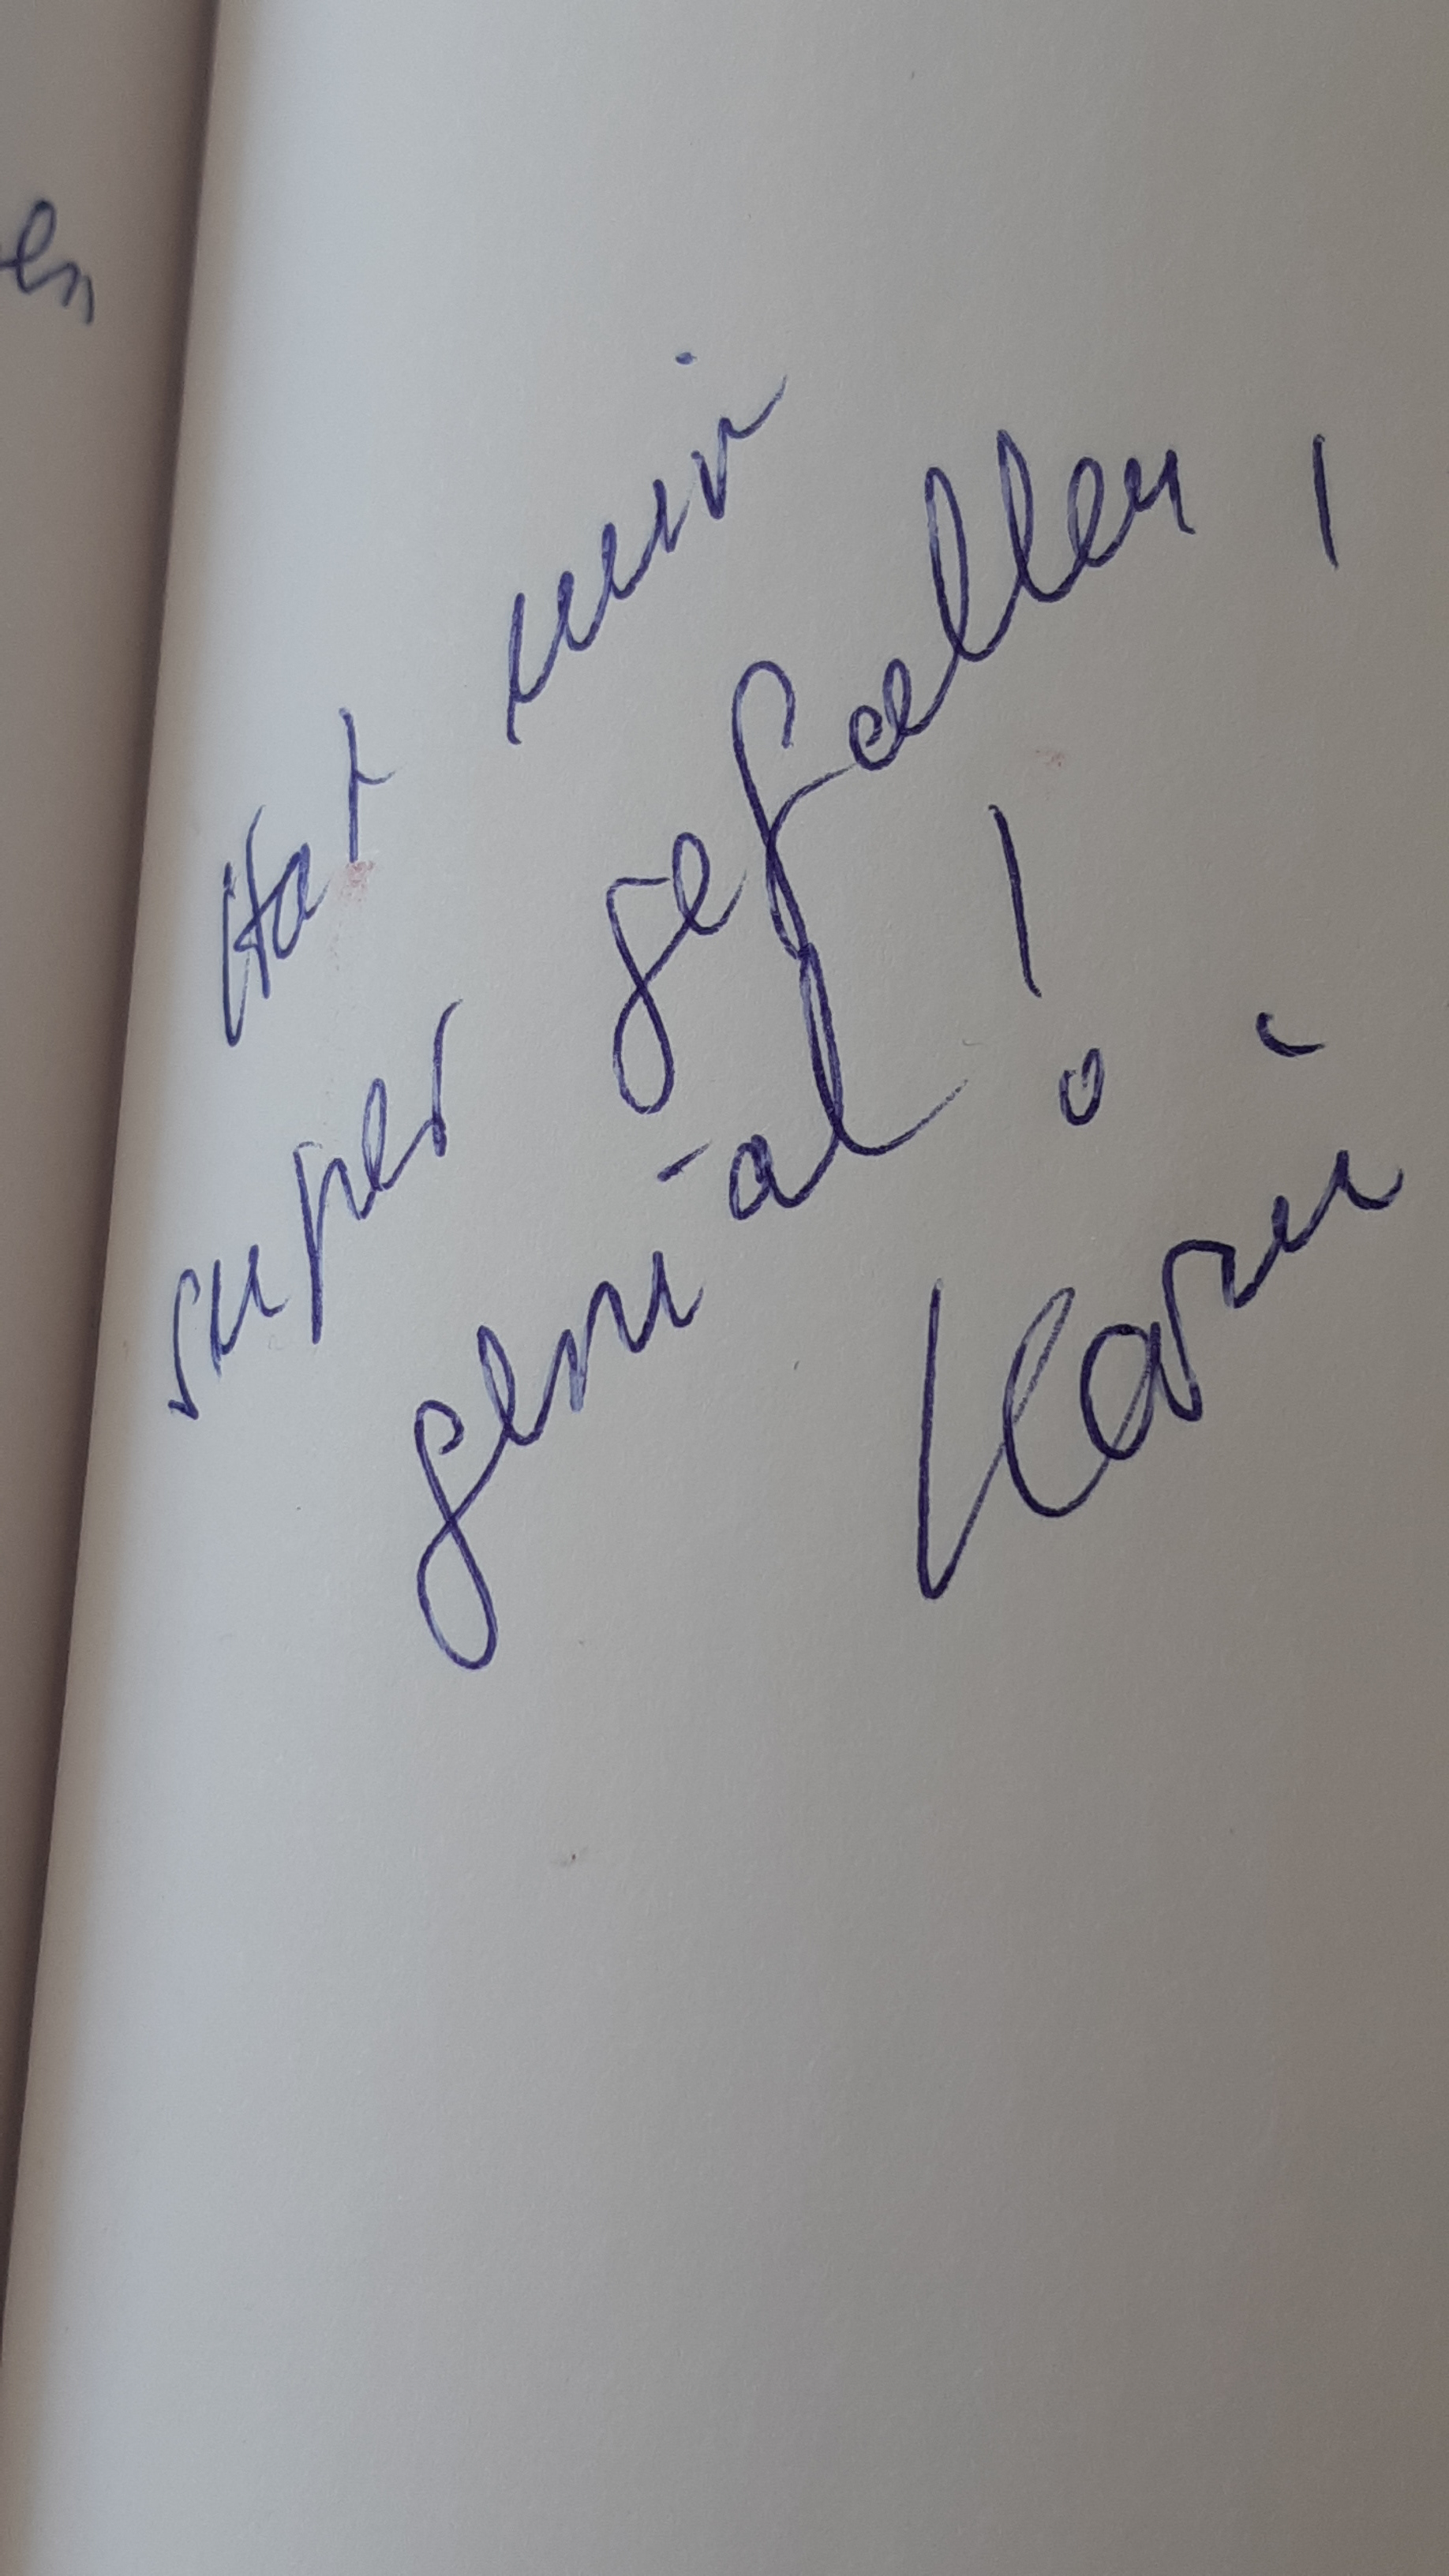 en
Hat mir
super gefallen,
genial!
Karin